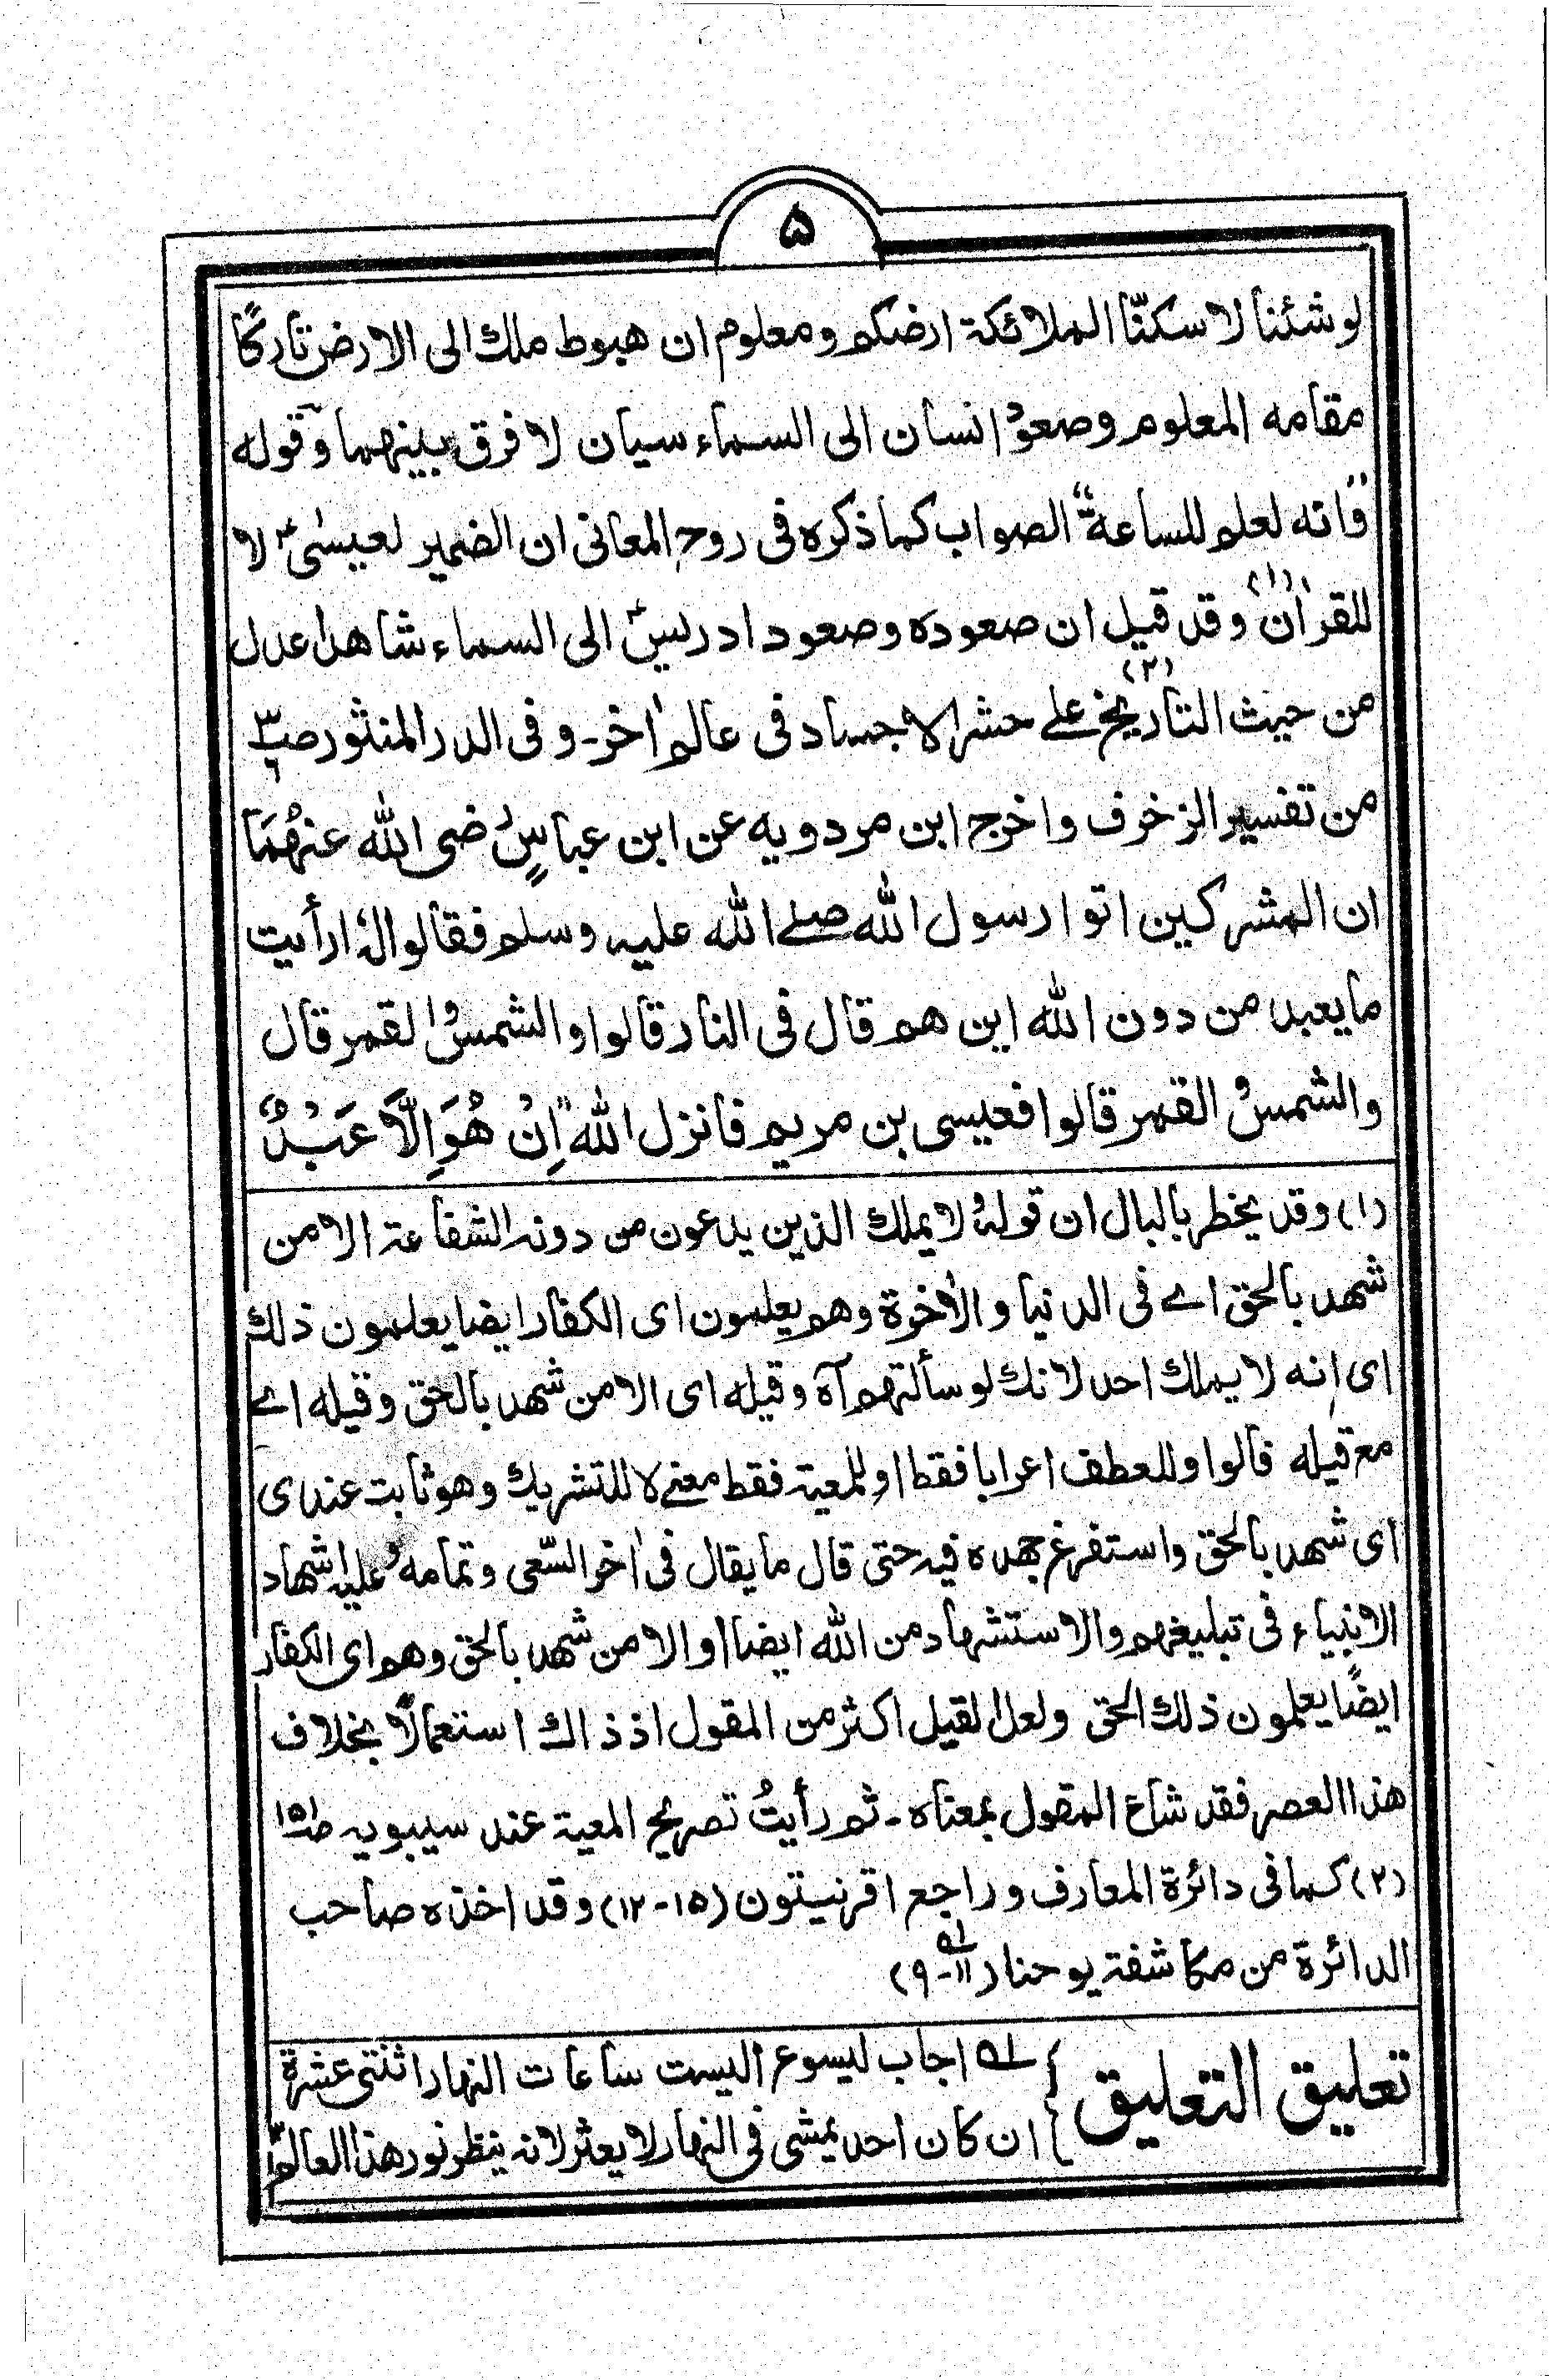 ۵
لو شئنا لاسكنّا الملائكة ارضكم ومعلوم ان هبوط ملك الى الارض تاركًا
مقامه المعلوم وصعود انسان الى السماء سيان لا فرق بينهما وقوله
”وانه لعلم للساعة“ الصواب كما ذكره فى روح المعانى ان الضمير لعيسىٰؑ لا
للقراٰن (۱) وقد قيل ان صعوده وصعود ادريسؑ الى السماء شاهدا عدل
من حيث التاريخ (۲) علے حشر الاجساد فى عالم اٰخر۔ وفى الدر المنثور
من تفسير الزخرف واخرج ابن مردويه عن ابن عباسٍ رضى الله عنهُمَا
ان المشركين اتوا رسول الله صلے الله عليه وسلم فقالوا لهٗ ارأيت
ما يعبد من دون الله اين هم قال فى النار قالوا والشمس والقمر قال
والشمس والقمر قالوا فعيسى بن مريم فانزل الله ”اِنْ هُوَ اِلَّا عَبْدٌ
(۱) وقد يخطر بالبال ان قولهٗ ولا يملك الذين يدعون من دونه الشفاعة الا من
شهد بالحق اے فى الدنيا والاٰخرة وهم يعلمون اى الكفار ايضا يعلمون ذلك
اى انه لا يملك احد لانك لو سألتهم آه وقيله اى الا من شهد بالحق وقيله اے
مع قيله قالوا وللعطف اعرابا فقط او للمعية فقط معنے لا للتشريك وهو ثابت عندى
اى شهد بالحق واستفرغ جهده فيه حتى قال ما يقال فى اٰخر السّعى وتمامه وعليه اشهاد
الانبياء فى تبليغهم والاستشهاد من الله ايضا او الا من شهد بالحق وهم اى الكفار
ايضًا يعلمون ذلك الحق ولعل القيل اكثر من المقول اذ ذاك استعمالًا بخلاف
هذا العصر فقد شاع المقول بمعناه۔ ثم رأيتُ تصريح المعية عند سيبويه
(۲) كما فى دائرة المعارف وراجع اقرنيتون (۱۵-۱۲) وقد اخذه صاحب
الدائرة من مكاشفة يوحنا (۱۱-۹)
تعليق التعليق } ۵۱ اجاب ليسوع اليست ساعات النهار اثنتى عشرة
ان كان احد يمشى فى النهار لا يعثر لانه ينظر نور هذا العالم